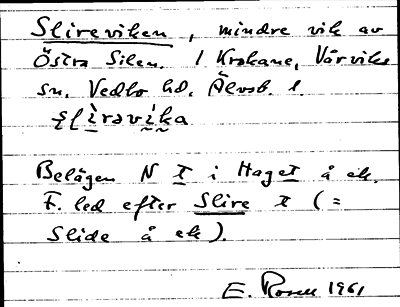 Slireviken, mindre vik av
Östra Silen. / Krokane, Vårviks
sn, Vedbo hd, Älvsb. l.
Belägen N t i Haget å ek.
F. led efter Slire t (=
Slide å ek).
E. Rosen 1961